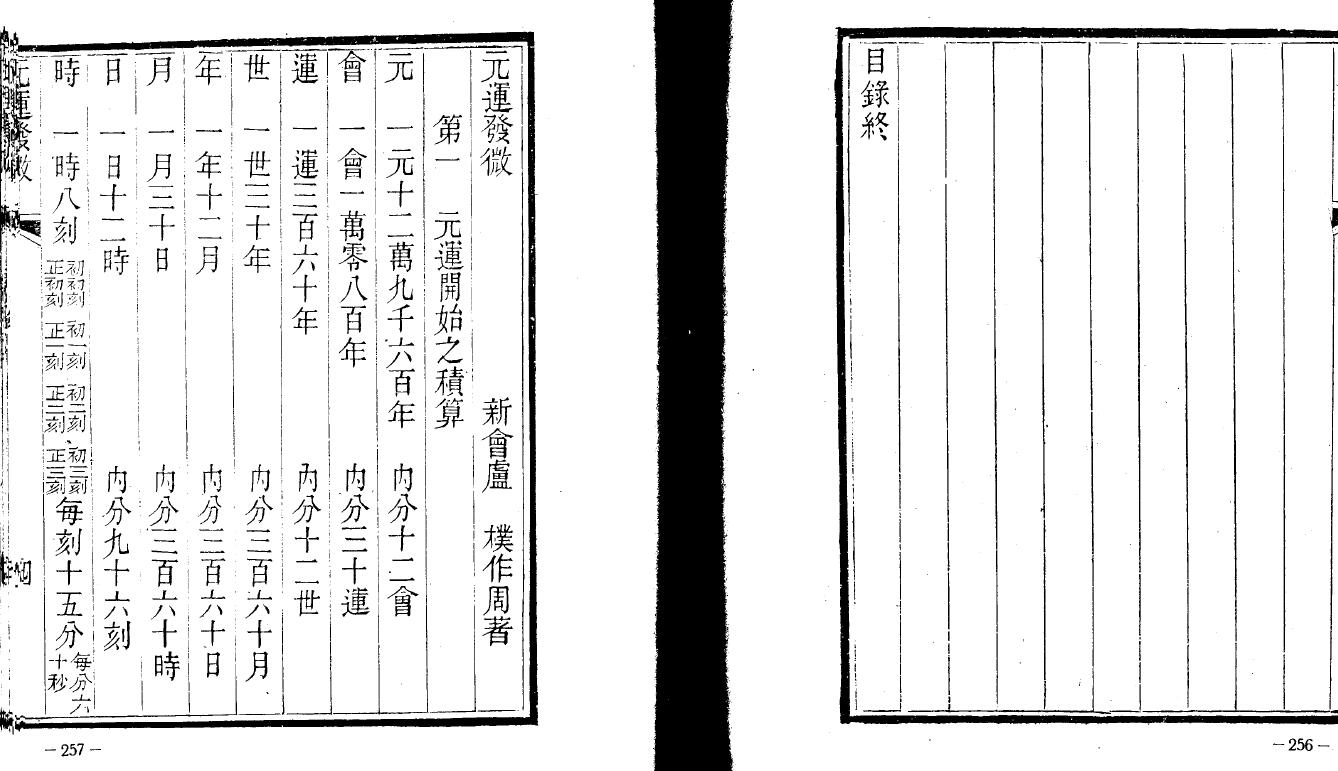 目錄終
－256－
元運發微　新會盧　樸作周著
第一　元運開始之積算
元　一元十二萬九千六百年　內分十二會
會　一會一萬零八百年　內分三十運
運　一運三百六十年　內分十二世
世　一世三十年　內分三百六十月
年　一年十二月　內分三百六十日
月　一月三十日　內分三百六十時
日　一日十二時　內分九十六刻
時　一時八刻　初初刻　正初刻　初一刻　正一刻　初二刻　正二刻　初三刻　正三刻　每刻十五分　每分六十秒
元運發微
四
－257－